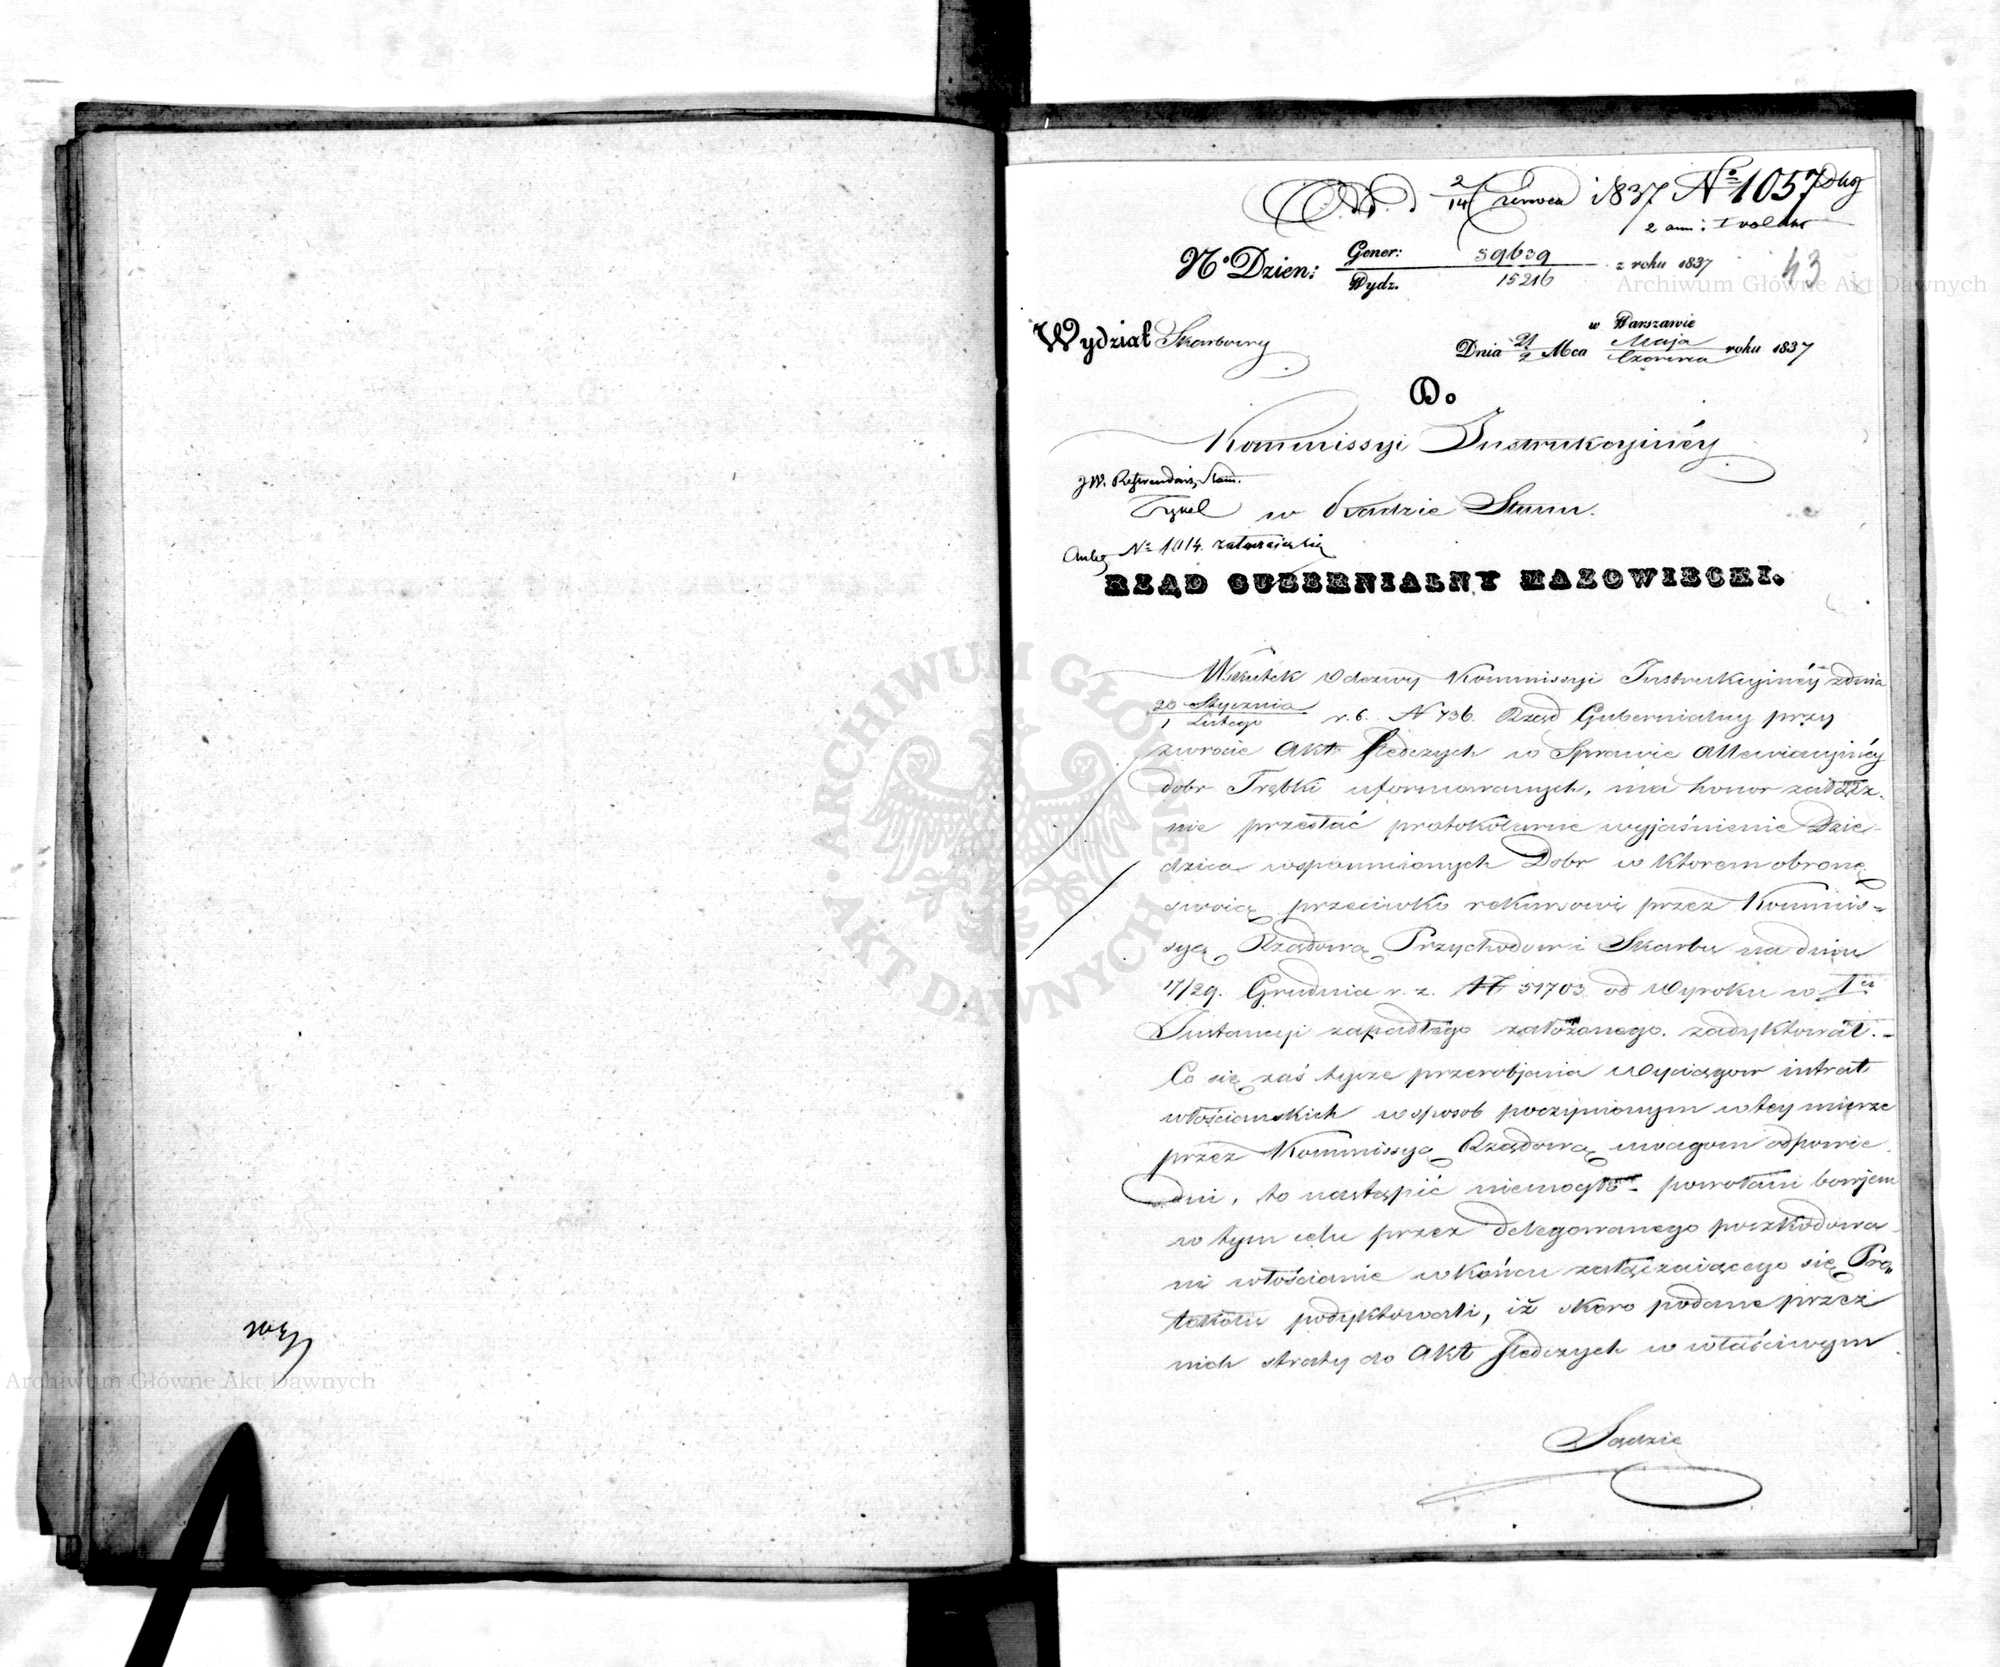 2/14 Czerwca 1837 No 1057
43
No Dzien: Gener: 59639 / Wydz. 15216 z roku 1837
w Warszawie
Wydział Skarbowy
Dnia 21/2 Mca Maja/Czerwca roku 1837
Do
Kommissyi Instrukcyinéy
w Radzie Stanu.
No 1014.
RZĄD GUBERNIALNY MAZOWIECKI.
Wskutek Odezwy Kommissyi Instrukcyinéy z dnia
20 Stycznia/1 Lutego r. b. N 736. Rząd Gubernialny przy
zwrocie Akt śledczych w Sprawie Allewiacyinéy
dobr Trąbki uformowanych, ma honor załącz-
nie przesłać protokólarne wyjaśnienie Dzie-
dzica wspomnionych Dobr w ktorem obronę
swoią przeciwko rekursowi przez Kommis-
syą Rządową Przychodow i Skarbu na dniu
17/29. Grudnia r. z. N 51703 od Wyroku w 1éi
Instancyi zapadłego założonego. zadyktował.-
Co się zaś tycze przerobjania Wyciągow intrat
włościanskich w sposob poczynionym w tey mierze
przez Kommissyą Rządową uwagom odpowie
dni, to nastąpić niemogło - powołani bowjem
w tym celu przez delegowanego poszkodowa-
ni włościanie w końcu załączaiącego się Pro-
tokółu podyktowali, iż skoro podane przez
nich straty do Akt śledczych w właściwym
Sądzie
ARCHIWUM GŁÓWNE AKT DAWNYCH
Archiwum Główne Akt Dawnych
Archiwum Główne Akt Dawnych